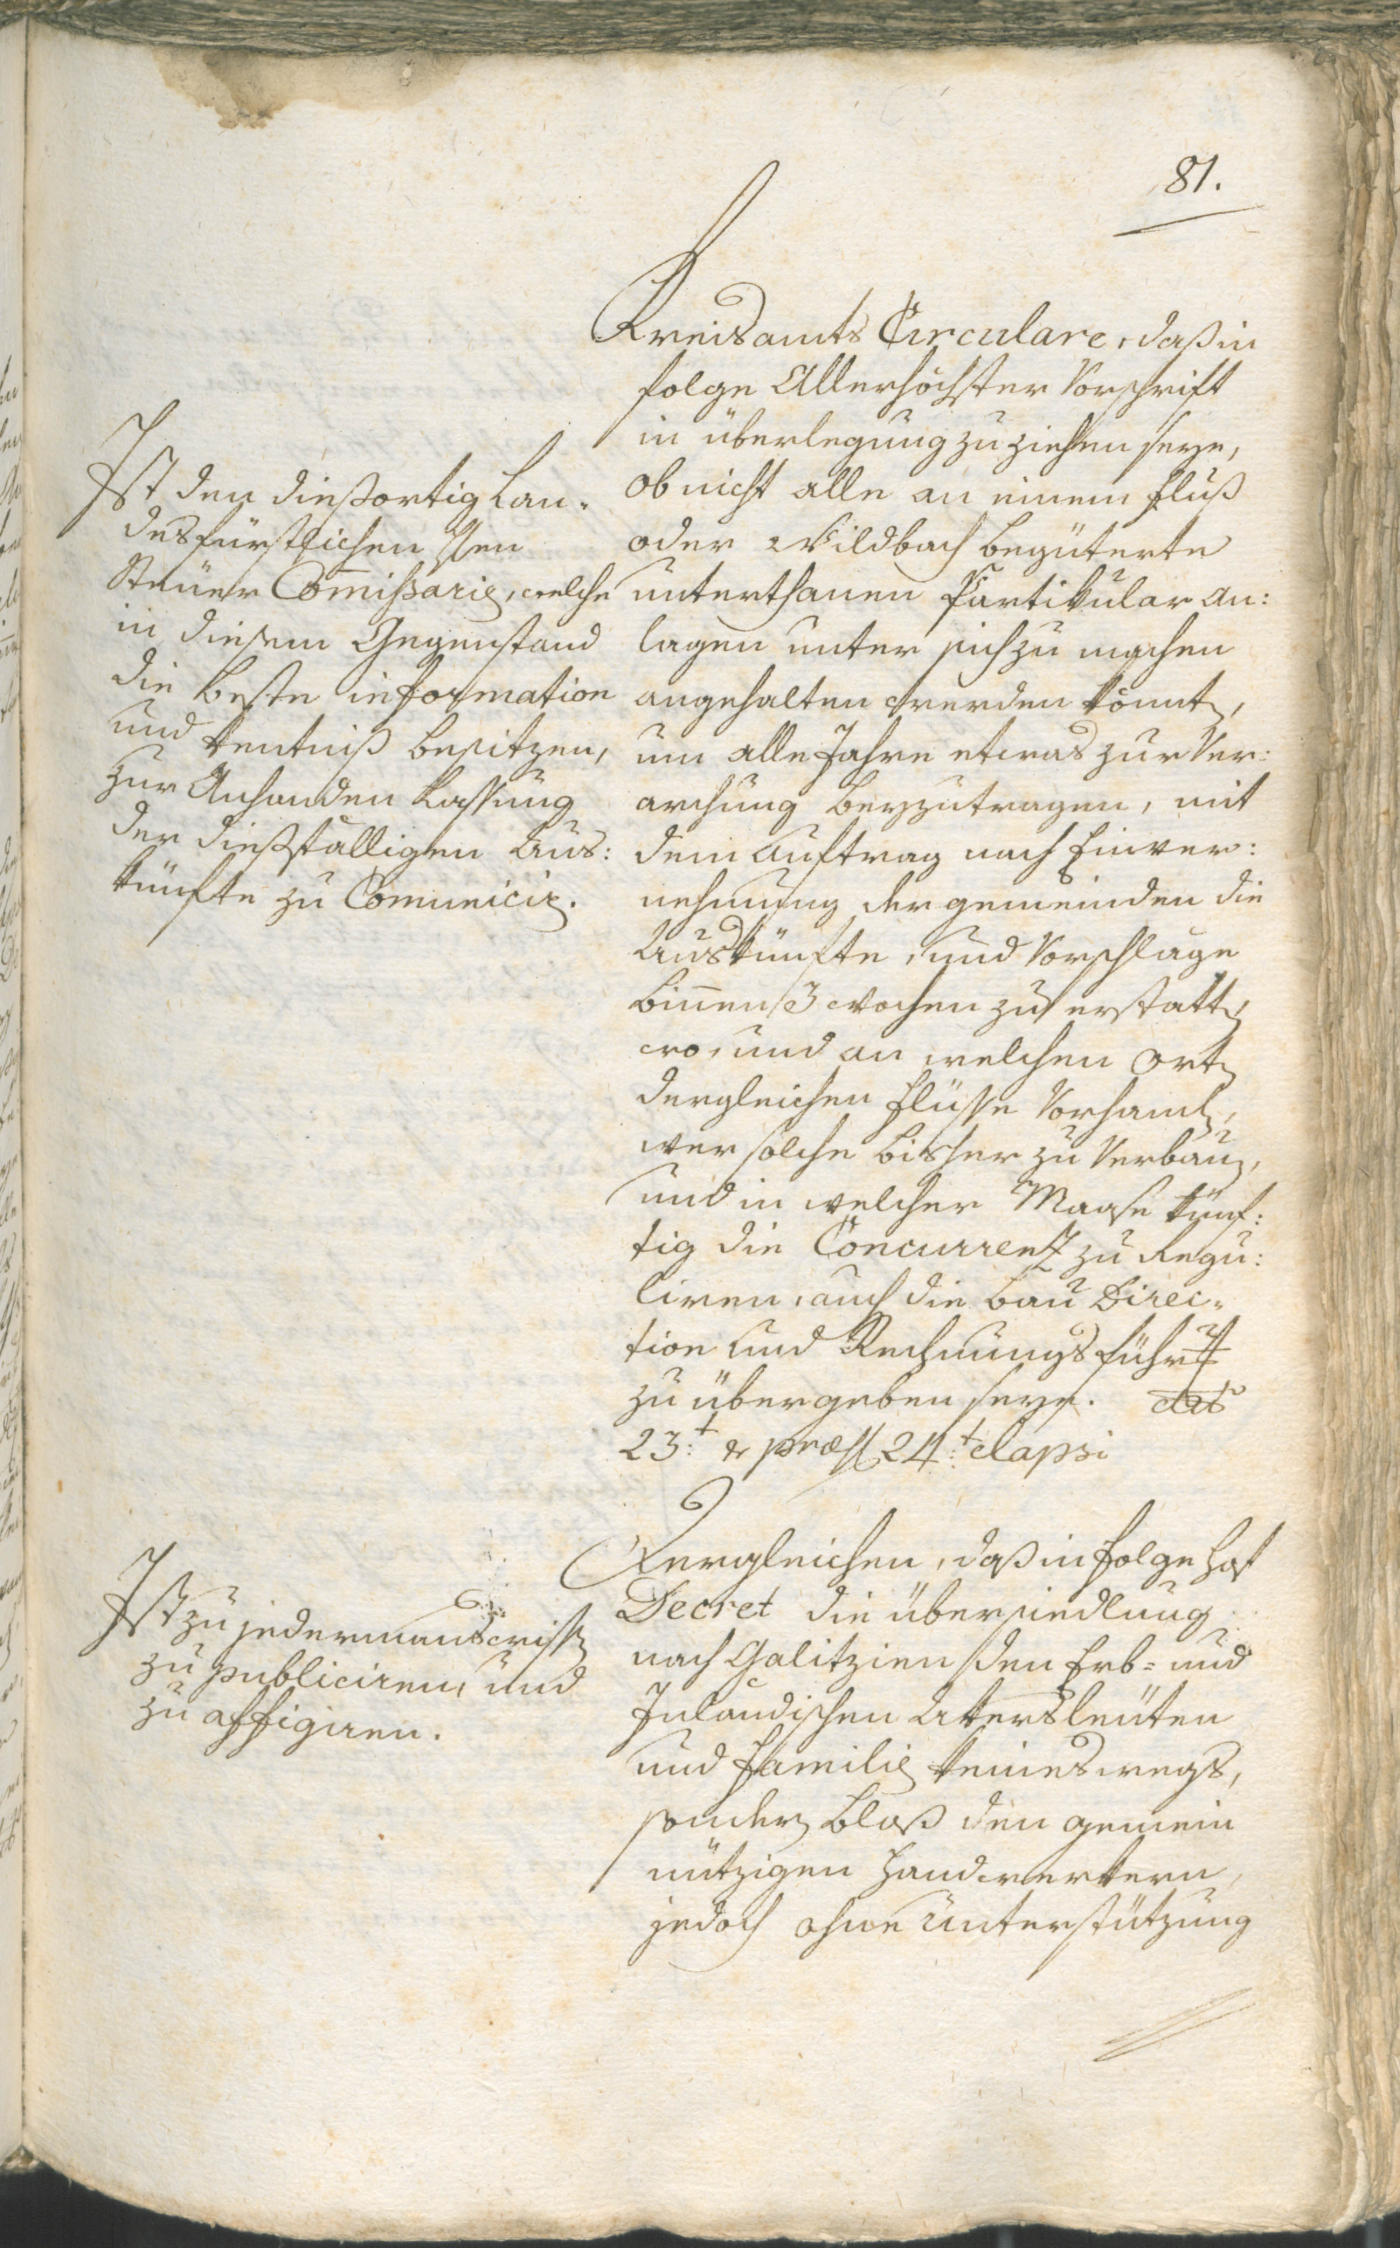 81.
Kreisamts Circulare, daß in
folge Allerhöchster Vorschrift
in überlegung zu ziehen seye,
ob nicht alle an einem Fluß
oder Wildbach begüterte
unterthanen Partikular an:
lagen unter sich zu machen
angehalten werden könnten,
um alle Jahre etwas zur Ver:
archung beyzutragen, mit
dem Auftrag nach Einver:
nehmung der gemeinden die
Auskünfte, und Vorschläge
binnen 3 wochen zu erstatten,
wo, und an welchen Orten
dergleichen Flüsse vorhanden,
wer solche bisher zu verbauen,
und in welcher Maase künf:
tig die Concurrenz zu Regu:
liren, auch die Bau Direc-
tion und Rechnungsführung
zu übergeben seye. dato
23:t & præst 24:t elapsi
Ist den dießortig Lan-
desfürstlichen Hen
Steuer Commissarien, welche
in diesem Gegenstand
die beste information
und kentniß besitzen,
zur Anhanden Lassung
der dießfälligen Aus:
künfte zu Comuniciren.
Dergleichen, daß in Folge Hof
Decret die übersiedlung
nach Galitzien den Erb- und
Inländischen Akersleuten
und Familien keineswegs,
sondern bloß den gemein
nützigen Handwerkern
jedoch ohne Unterstützung
Ist zu jedermans wissen
zu publiciren, und
zu affigiren.